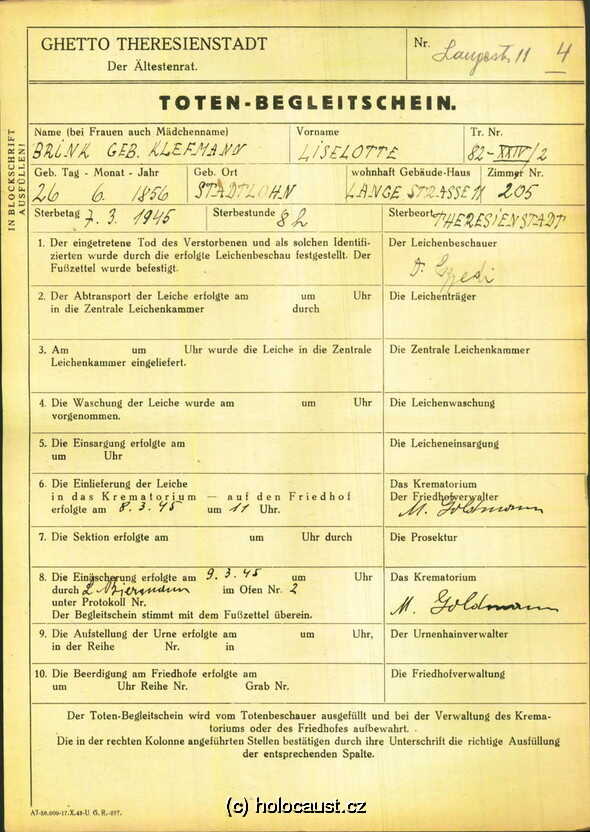 GHETTO THERESIENSTADT
Der Ältestenrat.
Nr. Langestr. 11 4
TOTEN-BEGLEITSCHEIN.
IN BLOCKSCHRIFT AUSFÜLLEN!
Name (bei Frauen auch Mädchenname) Vorname Tr. Nr.
BRINK GEB. KLEFMANN LISELOTTE 82-XXIV/2
Geb. Tag - Monat - Jahr Geb. Ort wohnhaft Gebäude-Haus Zimmer Nr.
26 6. 1856 STADTLOHN LANGE STRASSE 11 205
Sterbetag 7. 3. 1945 Sterbestunde 8 h Sterbeort THERESIENSTADT
1. Der eingetretene Tod des Verstorbenen und als solchen Identifi-
zierten wurde durch die erfolgte Leichenbeschau festgestellt. Der
Fußzettel wurde befestigt.
Der Leichenbeschauer
2. Der Abtransport der Leiche erfolgte am um Uhr
in die Zentrale Leichenkammer durch
Die Leichenträger
3. Am um Uhr wurde die Leiche in die Zentrale
Leichenkammer eingeliefert.
Die Zentrale Leichenkammer
4. Die Waschung der Leiche wurde am um Uhr
vorgenommen.
Die Leichenwaschung
5. Die Einsargung erfolgte am
um Uhr
Die Leicheneinsargung
6. Die Einlieferung der Leiche
in das Krematorium — auf den Friedhof
erfolgte am 8. 3. 45 um 11 Uhr.
Das Krematorium
Der Friedhofverwalter
M. Goldmann
7. Die Sektion erfolgte am um Uhr durch
Die Prosektur
8. Die Einäscherung erfolgte am 9. 3. 45 um Uhr
durch im Ofen Nr. 2
unter Protokoll Nr.
Der Begleitschein stimmt mit dem Fußzettel überein.
Das Krematorium
M. Goldmann
9. Die Aufstellung der Urne erfolgte am um Uhr,
in der Reihe Nr. in
Der Urnenhainverwalter
10. Die Beerdigung am Friedhofe erfolgte am
um Uhr Reihe Nr. Grab Nr.
Die Friedhofverwaltung
Der Toten-Begleitschein wird vom Totenbeschauer ausgefüllt und bei der Verwaltung des Krema-
toriums oder des Friedhofes aufbewahrt.
Die in der rechten Kolonne angeführten Stellen bestätigen durch ihre Unterschrift die richtige Ausfüllung
der entsprechenden Spalte.
(c) holocaust.cz